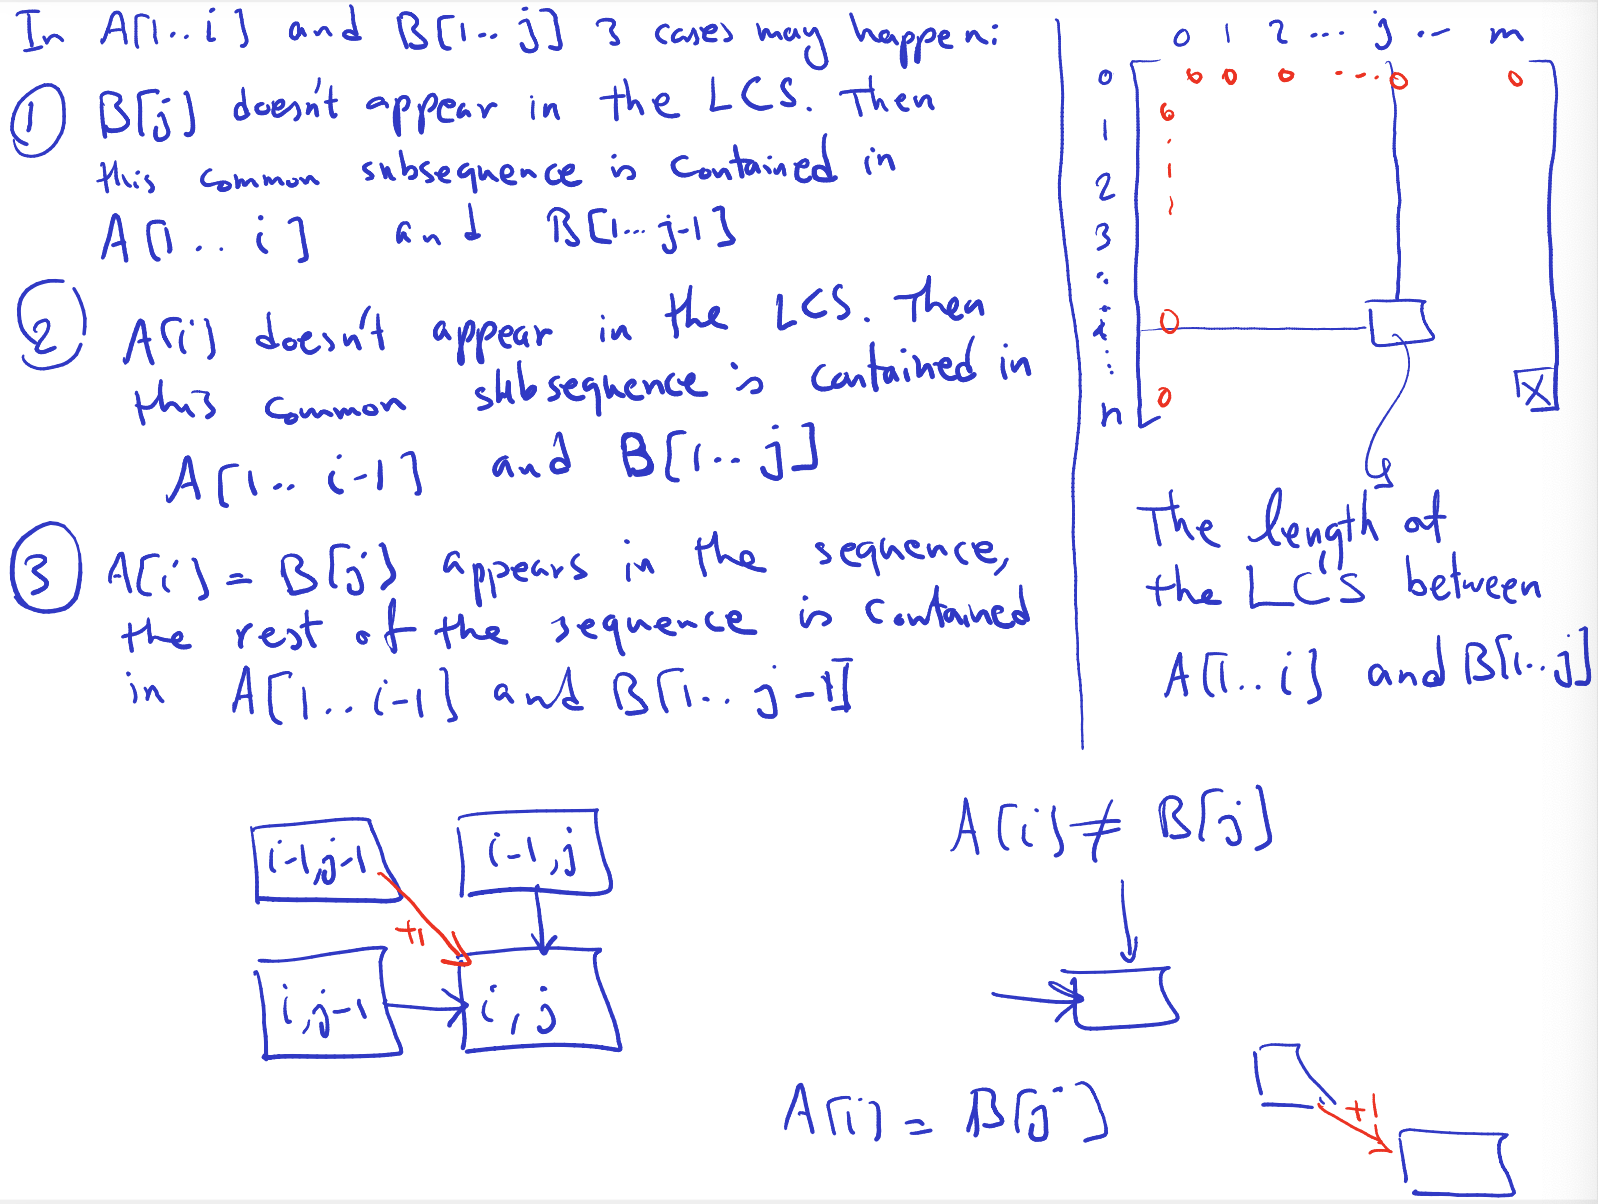 In A[1..i] and B[1..j] 3 cases may happen:
① B[j] doesn't appear in the LCS. Then
this common subsequence is contained in
A[1..i] and B[1...j-1]
② A[i] doesn't appear in the LCS. Then
this common subsequence is contained in
A[1..i-1] and B[1..j]
③ A[i] = B[j] appears in the sequence,
the rest of the sequence is contained
in A[1..i-1] and B[1..j-1]
0 1 2 ... j ... m
0 0 0 0 .... 0 0
1 0
2
3
i 0
n 0
X
The length of
the LC'S between
A[1..i] and B[1..j]
i-1,j-1 i-1,j
+1
i,j-1 i,j
A[i] ≠ B[j]
A[i] = B[j]
+1